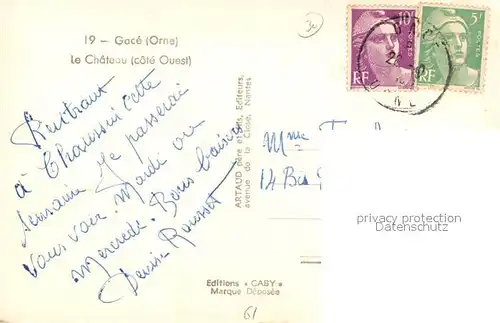 19 — Gacé (Orne)
Le Château (côté Ouest)
30
10F
5F
POSTES
RF
POSTES
RF
Rentrant
à Chaussin cette
semaine je passerai
vous voir Mardi ou
Mercredi. Bons baisers
Denise Rousset
ARTAUD père et fils, Editeurs,
avenue de la Close, Nantes
Mme
14 Bis
privacy protection
Datenschutz
Editions « GABY »
Marque Déposée
61